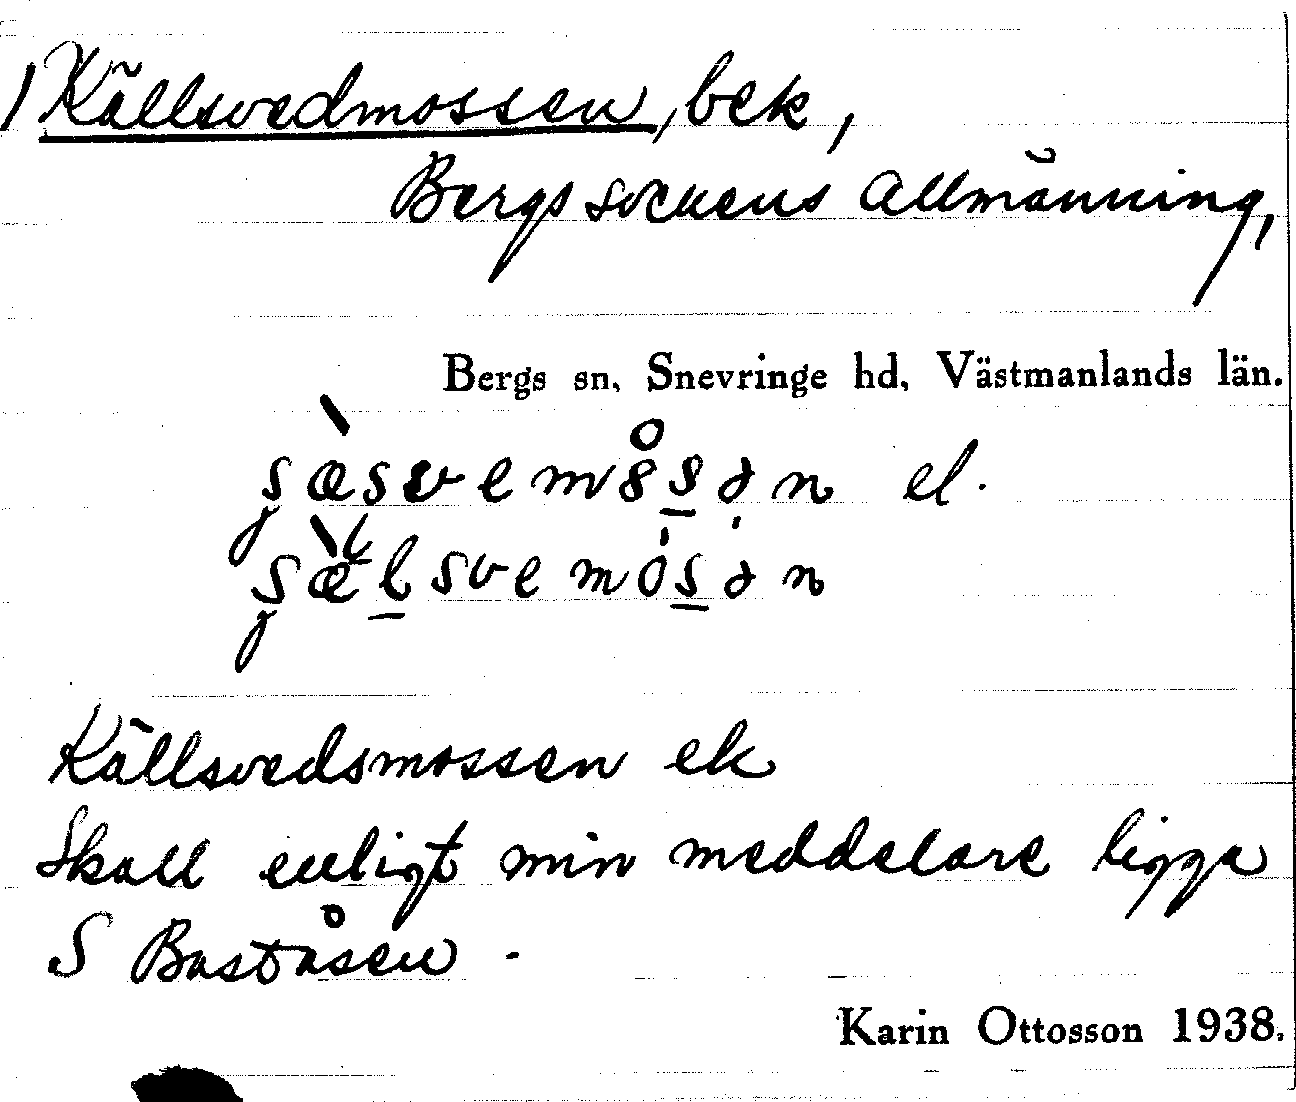 1 Källsvedmossen, bek,
Bergs sockens Allmänning,
Bergs sn, Snevringe hd, Västmanlands län.
el.
Källsvedsmossen ek
Skall enligt min meddelare ligga
S Baståsen.
Karin Ottosson 1938.